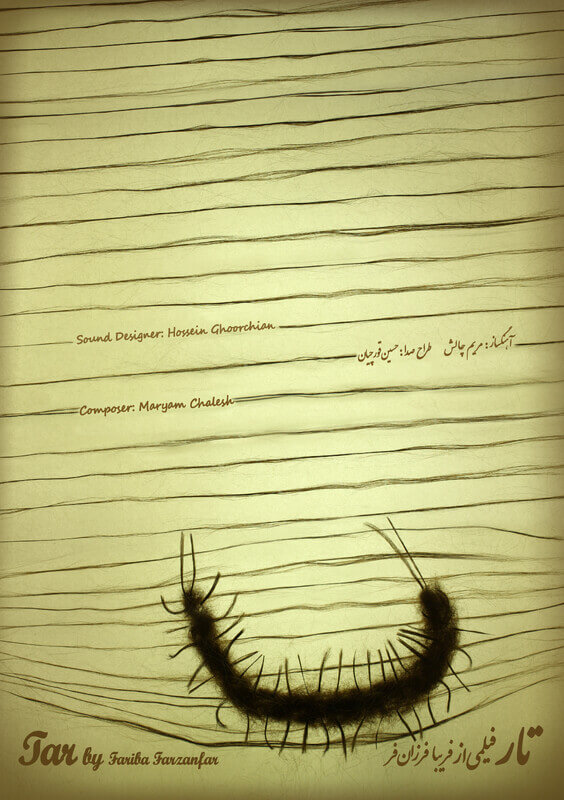 Sound Designer: Hossein Ghoorchian
آهنگساز: مریم چالش طراح صدا: حسین قورچیان
Composer: Maryam Chalesh
Tar by Fariba Farzanfar
تار فیلمی از فریبا فرزان‌فر